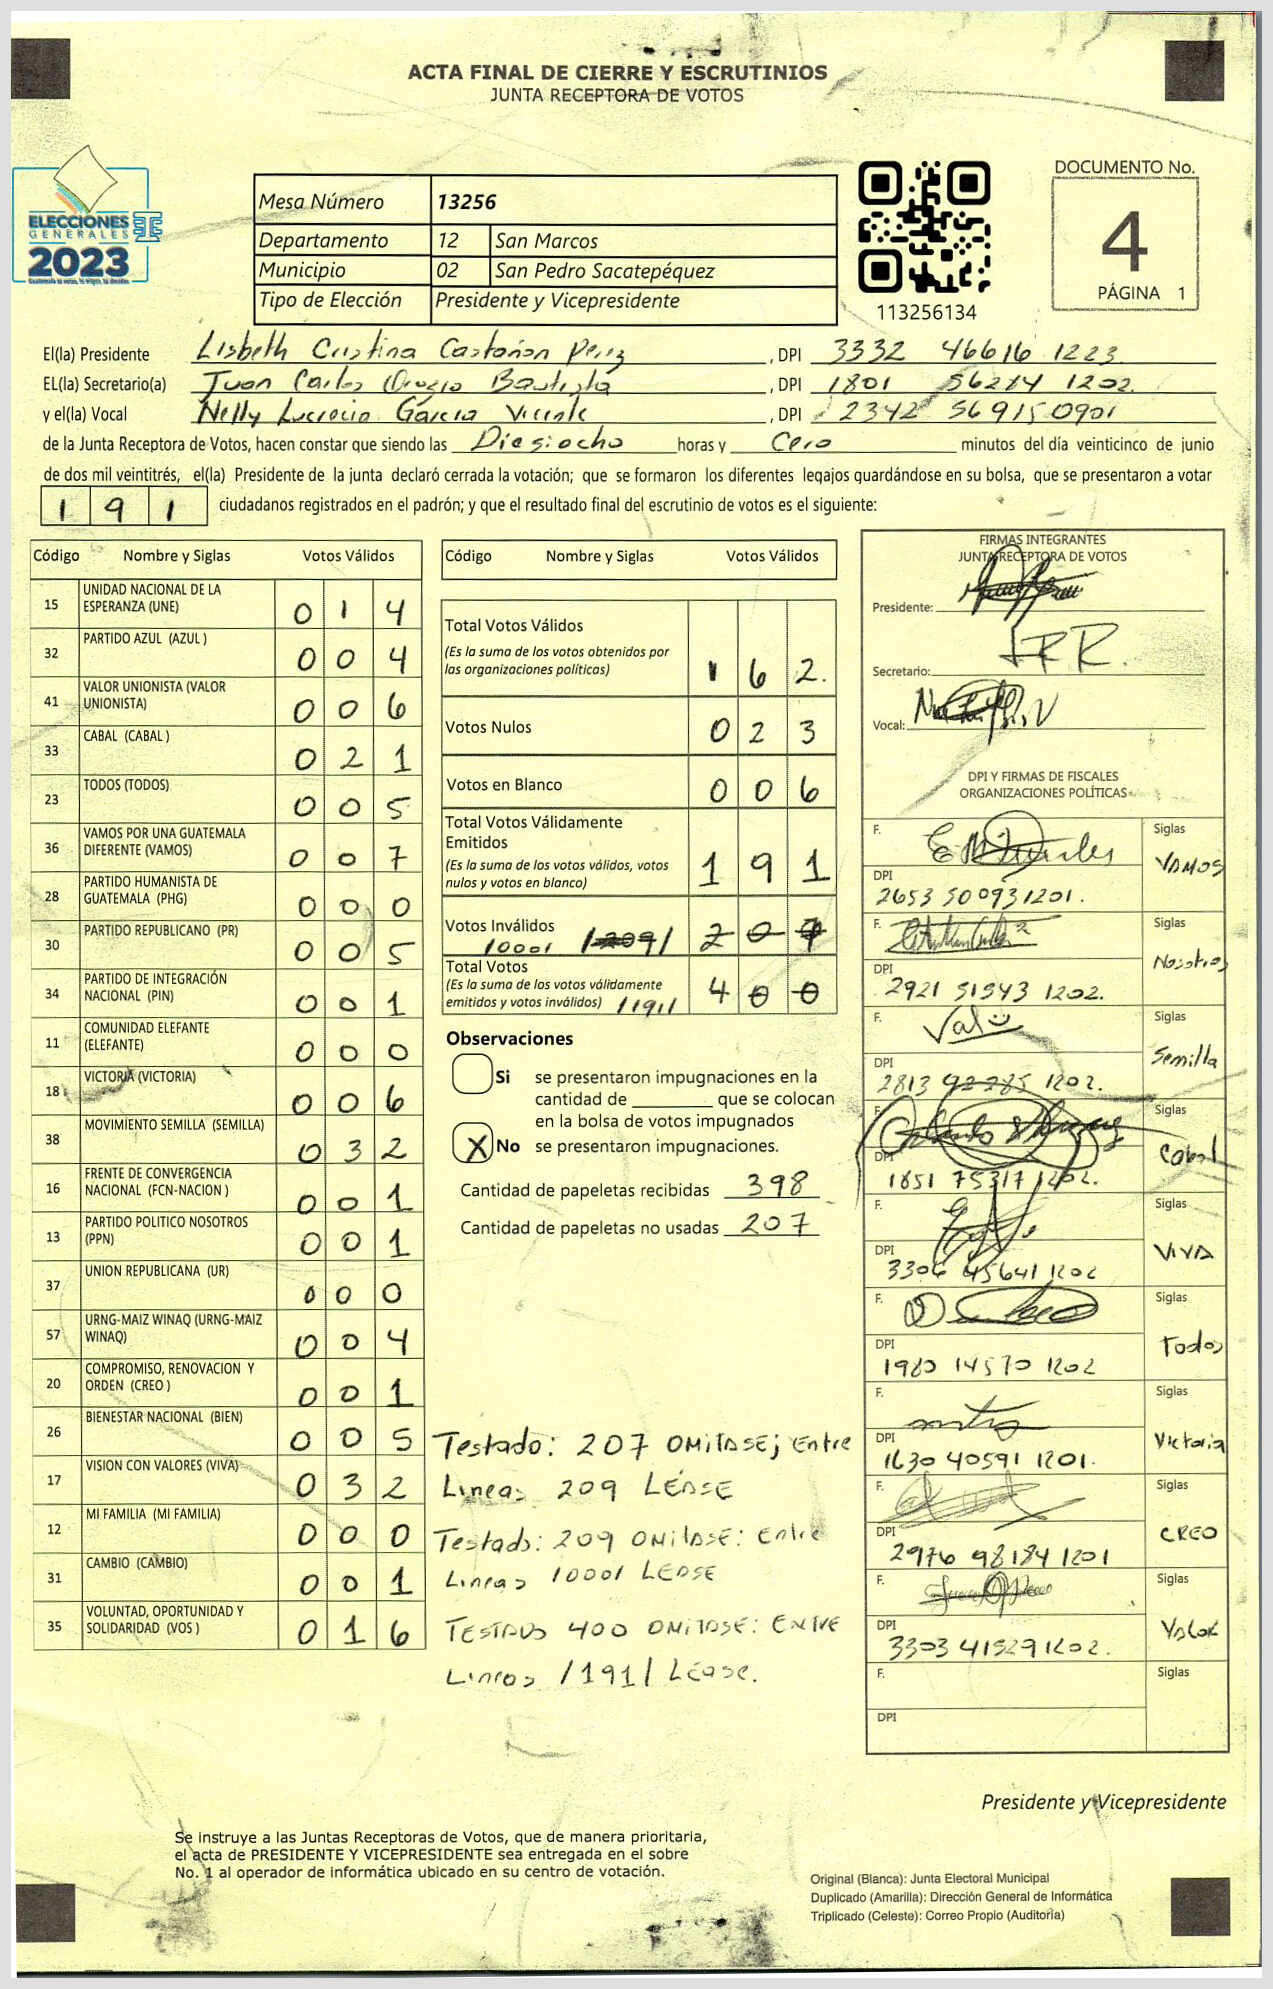 ACTA FINAL DE CIERRE Y ESCRUTINIOS
JUNTA RECEPTORA DE VOTOS
ELECCIONES
GENERALES
2023
Mesa Número 13256
Departamento 12 San Marcos
Municipio 02 San Pedro Sacatepéquez
Tipo de Elección Presidente y Vicepresidente
113256134
DOCUMENTO No.
4
PÁGINA 1
El(la) Presidente Lisbeth Cristina Castañon Perez , DPI 3332 46616 1223
EL(la) Secretario(a) Juan Carlos Orozco Bautista , DPI 1801 56214 1202
y el(la) Vocal Nelly Lucrecia García Vicente , DPI 2342 56915 0901
de la Junta Receptora de Votos, hacen constar que siendo las Diesiocho horas y Cero minutos del día veinticinco de junio
de dos mil veintitrés, el(la) Presidente de la junta declaró cerrada la votación; que se formaron los diferentes legajos guardándose en su bolsa, que se presentaron a votar
191 ciudadanos registrados en el padrón; y que el resultado final del escrutinio de votos es el siguiente:
Código Nombre y Siglas Votos Válidos
15 UNIDAD NACIONAL DE LA ESPERANZA (UNE) 0 1 4
32 PARTIDO AZUL (AZUL ) 0 0 4
41 VALOR UNIONISTA (VALOR UNIONISTA) 0 0 6
33 CABAL (CABAL ) 0 2 1
23 TODOS (TODOS) 0 0 5
36 VAMOS POR UNA GUATEMALA DIFERENTE (VAMOS) 0 0 7
28 PARTIDO HUMANISTA DE GUATEMALA (PHG) 0 0 0
30 PARTIDO REPUBLICANO (PR) 0 0 5
34 PARTIDO DE INTEGRACIÓN NACIONAL (PIN) 0 0 1
11 COMUNIDAD ELEFANTE (ELEFANTE) 0 0 0
18 VICTORIA (VICTORIA) 0 0 6
38 MOVIMIENTO SEMILLA (SEMILLA) 0 3 2
16 FRENTE DE CONVERGENCIA NACIONAL (FCN-NACION ) 0 0 1
13 PARTIDO POLITICO NOSOTROS (PPN) 0 0 1
37 UNION REPUBLICANA (UR) 0 0 0
57 URNG-MAIZ WINAQ (URNG-MAIZ WINAQ) 0 0 4
20 COMPROMISO, RENOVACION Y ORDEN (CREO ) 0 0 1
26 BIENESTAR NACIONAL (BIEN) 0 0 5
17 VISION CON VALORES (VIVA) 0 3 2
12 MI FAMILIA (MI FAMILIA) 0 0 0
31 CAMBIO (CAMBIO) 0 0 1
35 VOLUNTAD, OPORTUNIDAD Y SOLIDARIDAD (VOS ) 0 1 6
Código Nombre y Siglas Votos Válidos
Total Votos Válidos 1 6 2.
(Es la suma de los votos obtenidos por
las organizaciones políticas)
Votos Nulos 0 2 3
Votos en Blanco 0 0 6
Total Votos Válidamente
Emitidos 1 9 1
(Es la suma de los votos válidos, votos
nulos y votos en blanco)
Votos Inválidos 2 0 7
10001 /209/
Total Votos 4 0 0
(Es la suma de los votos válidamente
emitidos y votos inválidos) /191/
Observaciones
Si se presentaron impugnaciones en la
cantidad de ________ que se colocan
en la bolsa de votos impugnados
X No se presentaron impugnaciones.
Cantidad de papeletas recibidas 398
Cantidad de papeletas no usadas 207
Testado: 207 OMITASE; Entre
Lineas 209 LÉASE
Testado: 209 OMITASE: Entre
Lineas 10001 LEASE
TESTADO 400 OMITASE: ENTRE
Lineas /191/ Léase.
FIRMAS INTEGRANTES
JUNTA RECEPTORA DE VOTOS
Presidente:
Secretario:
Vocal:
DPI Y FIRMAS DE FISCALES
ORGANIZACIONES POLÍTICAS
F. Siglas VAMOS
DPI 2653 50093 1201.
F. Siglas Nosotros
DPI 2921 51543 1202.
F. Siglas Semilla
DPI 2813 92285 1202.
F. Siglas Cabal
DPI 1851 75317 1202.
F. Siglas VIVA
DPI 3306 45641 1202
F. Siglas Todos
DPI 1980 14570 1202
F. Siglas Victoria
DPI 1630 40591 1201.
F. Siglas CREO
DPI 2976 98184 1201
F. Siglas VALOR
DPI 3303 41529 1202.
F. Siglas
DPI
Presidente y Vicepresidente
Se instruye a las Juntas Receptoras de Votos, que de manera prioritaria,
el acta de PRESIDENTE Y VICEPRESIDENTE sea entregada en el sobre
No. 1 al operador de informática ubicado en su centro de votación.
Original (Blanca): Junta Electoral Municipal
Duplicado (Amarilla): Dirección General de Informática
Triplicado (Celeste): Correo Propio (Auditoría)